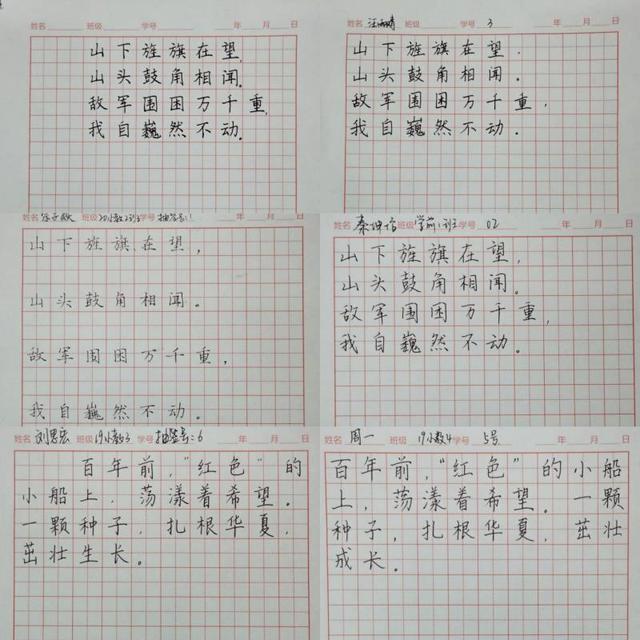 姓名 班级 学号 年 月 日
山下旌旗在望,
山头鼓角相闻。
敌军围困万千重,
我自巍然不动。
姓名 班级 学号 3 年 月 日
山下旌旗在望,
山头鼓角相闻。
敌军围困万千重,
我自巍然不动。
姓名 班级 学号 年 月 日
山下旌旗在望,
山头鼓角相闻。
敌军围困万千重,
我自巍然不动。
姓名 班级 学前1班 02 年 月 日
山下旌旗在望,
山头鼓角相闻。
敌军围困万千重,
我自巍然不动。
姓名 刘思宏 班级 19小教3 学号 抽签号:6 年 月 日
百年前,"红色"的
小船上,荡漾着希望。
一颗种子,扎根华夏,
茁壮生长。
姓名 周一 班级 19小教4 学号 5号 年 月 日
百年前,"红色"的小船
上,荡漾着希望。一颗
种子,扎根华夏,茁壮
成长。